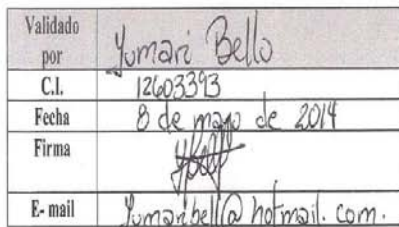 Validado por Yumari Bello
C.I. 12603393
Fecha 8 de mayo de 2014
Firma
E- mail Yumaribell@hotmail.com.